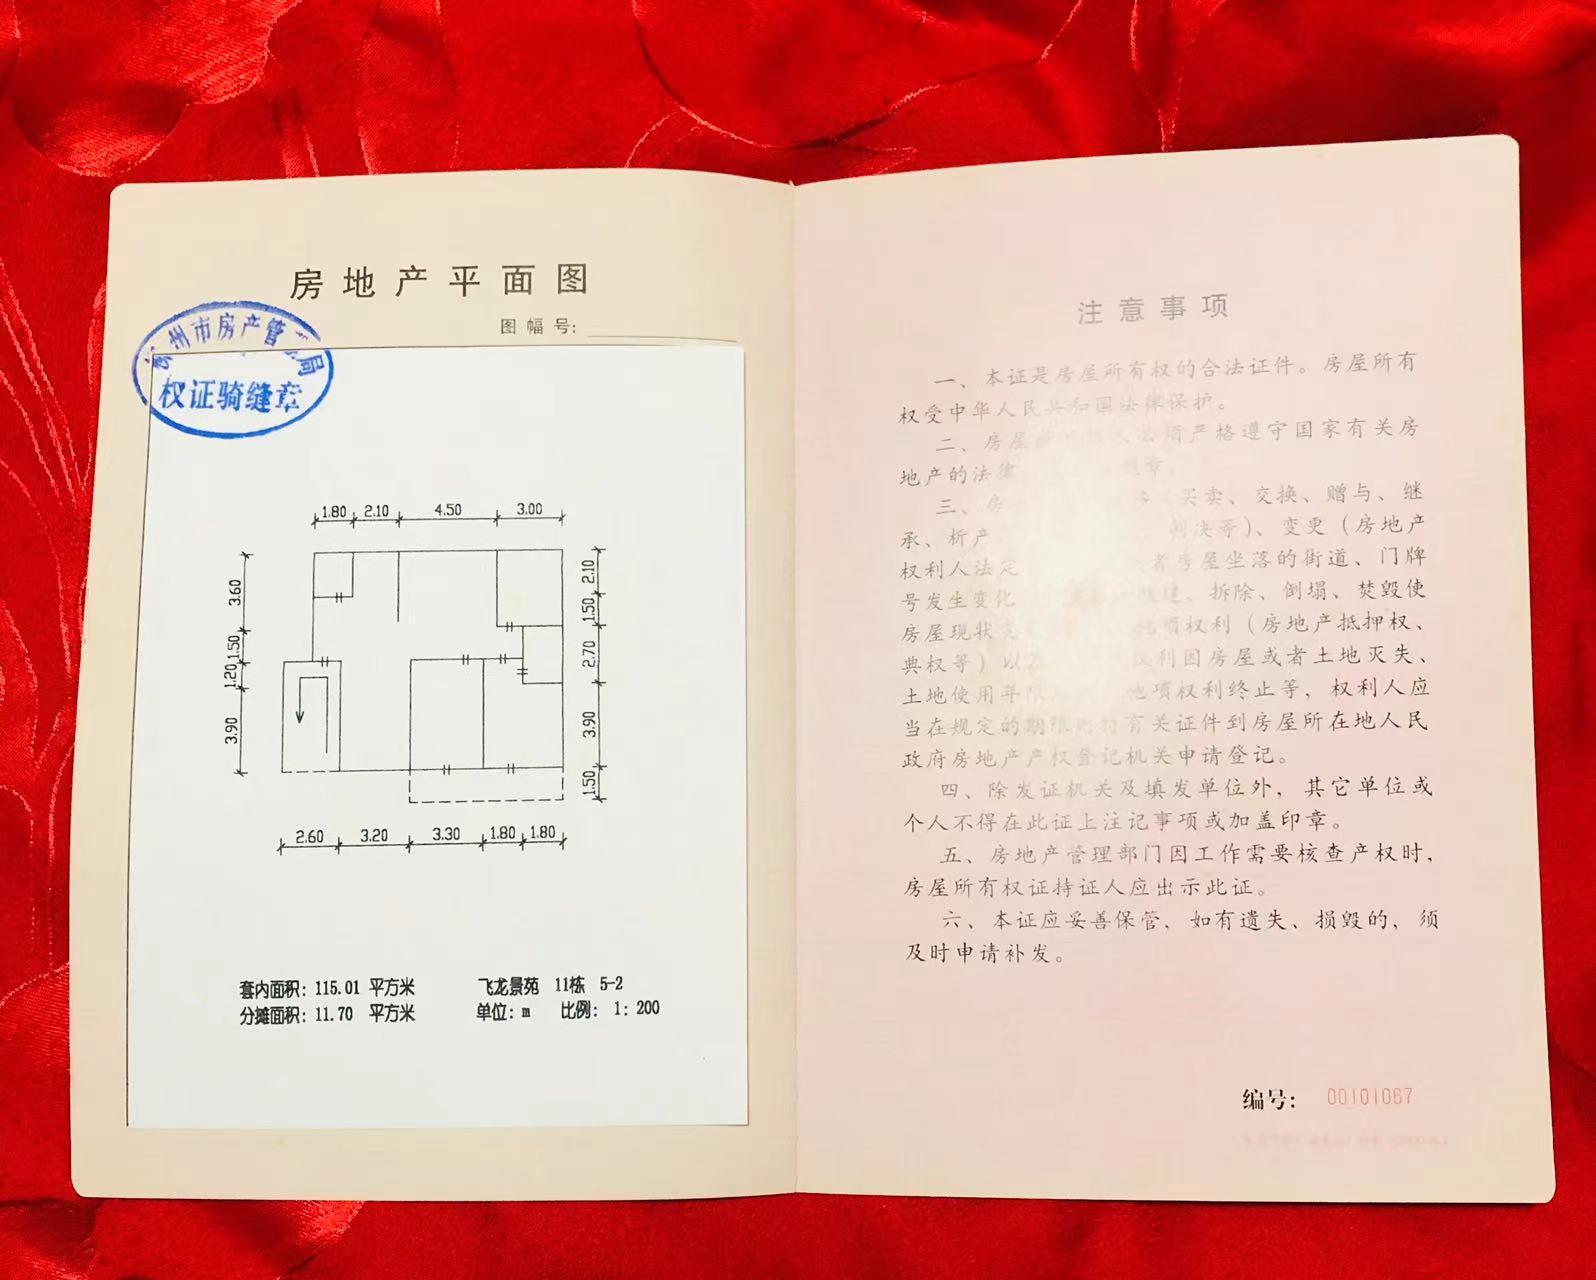 房地产平面图
图幅号:
州市房产管 局
权证骑缝章
1.80 2.10 4.50 3.00
3.60 1.50 1.20 3.90
2.10 1.50 2.70 3.90 1.50
2.60 3.20 3.30 1.80 1.80
套内面积: 115.01 平方米 飞龙景苑 11栋 5-2
分摊面积: 11.70 平方米 单位: m 比例: 1: 200
注意事项
一、本证是房屋所有权的合法证件。房屋所有
权受中华人民共和国法律保护。
二、房屋 人必须严格遵守国家有关房
地产的法律 章。
三、房 (买卖、交换、赠与、继
承、析产、 判决等)、变更(房地产
权利人法定 者房屋坐落的街道、门牌
号发生变化 建、拆除、倒塌、焚毁使
房屋现状 他项权利(房地产抵押权、
典权等)以 权利因房屋或者土地灭失、
土地使用年限 他项权利终止等,权利人应
当在规定的期限内持有关证件到房屋所在地人民
政府房地产产权登记机关申请登记。
四、除发证机关及填发单位外,其它单位或
个人不得在此证上注记事项或加盖印章。
五、房地产管理部门因工作需要核查产权时,
房屋所有权证持证人应出示此证。
六、本证应妥善保管,如有遗失、损毁的,须
及时申请补发。
编号: 00101067